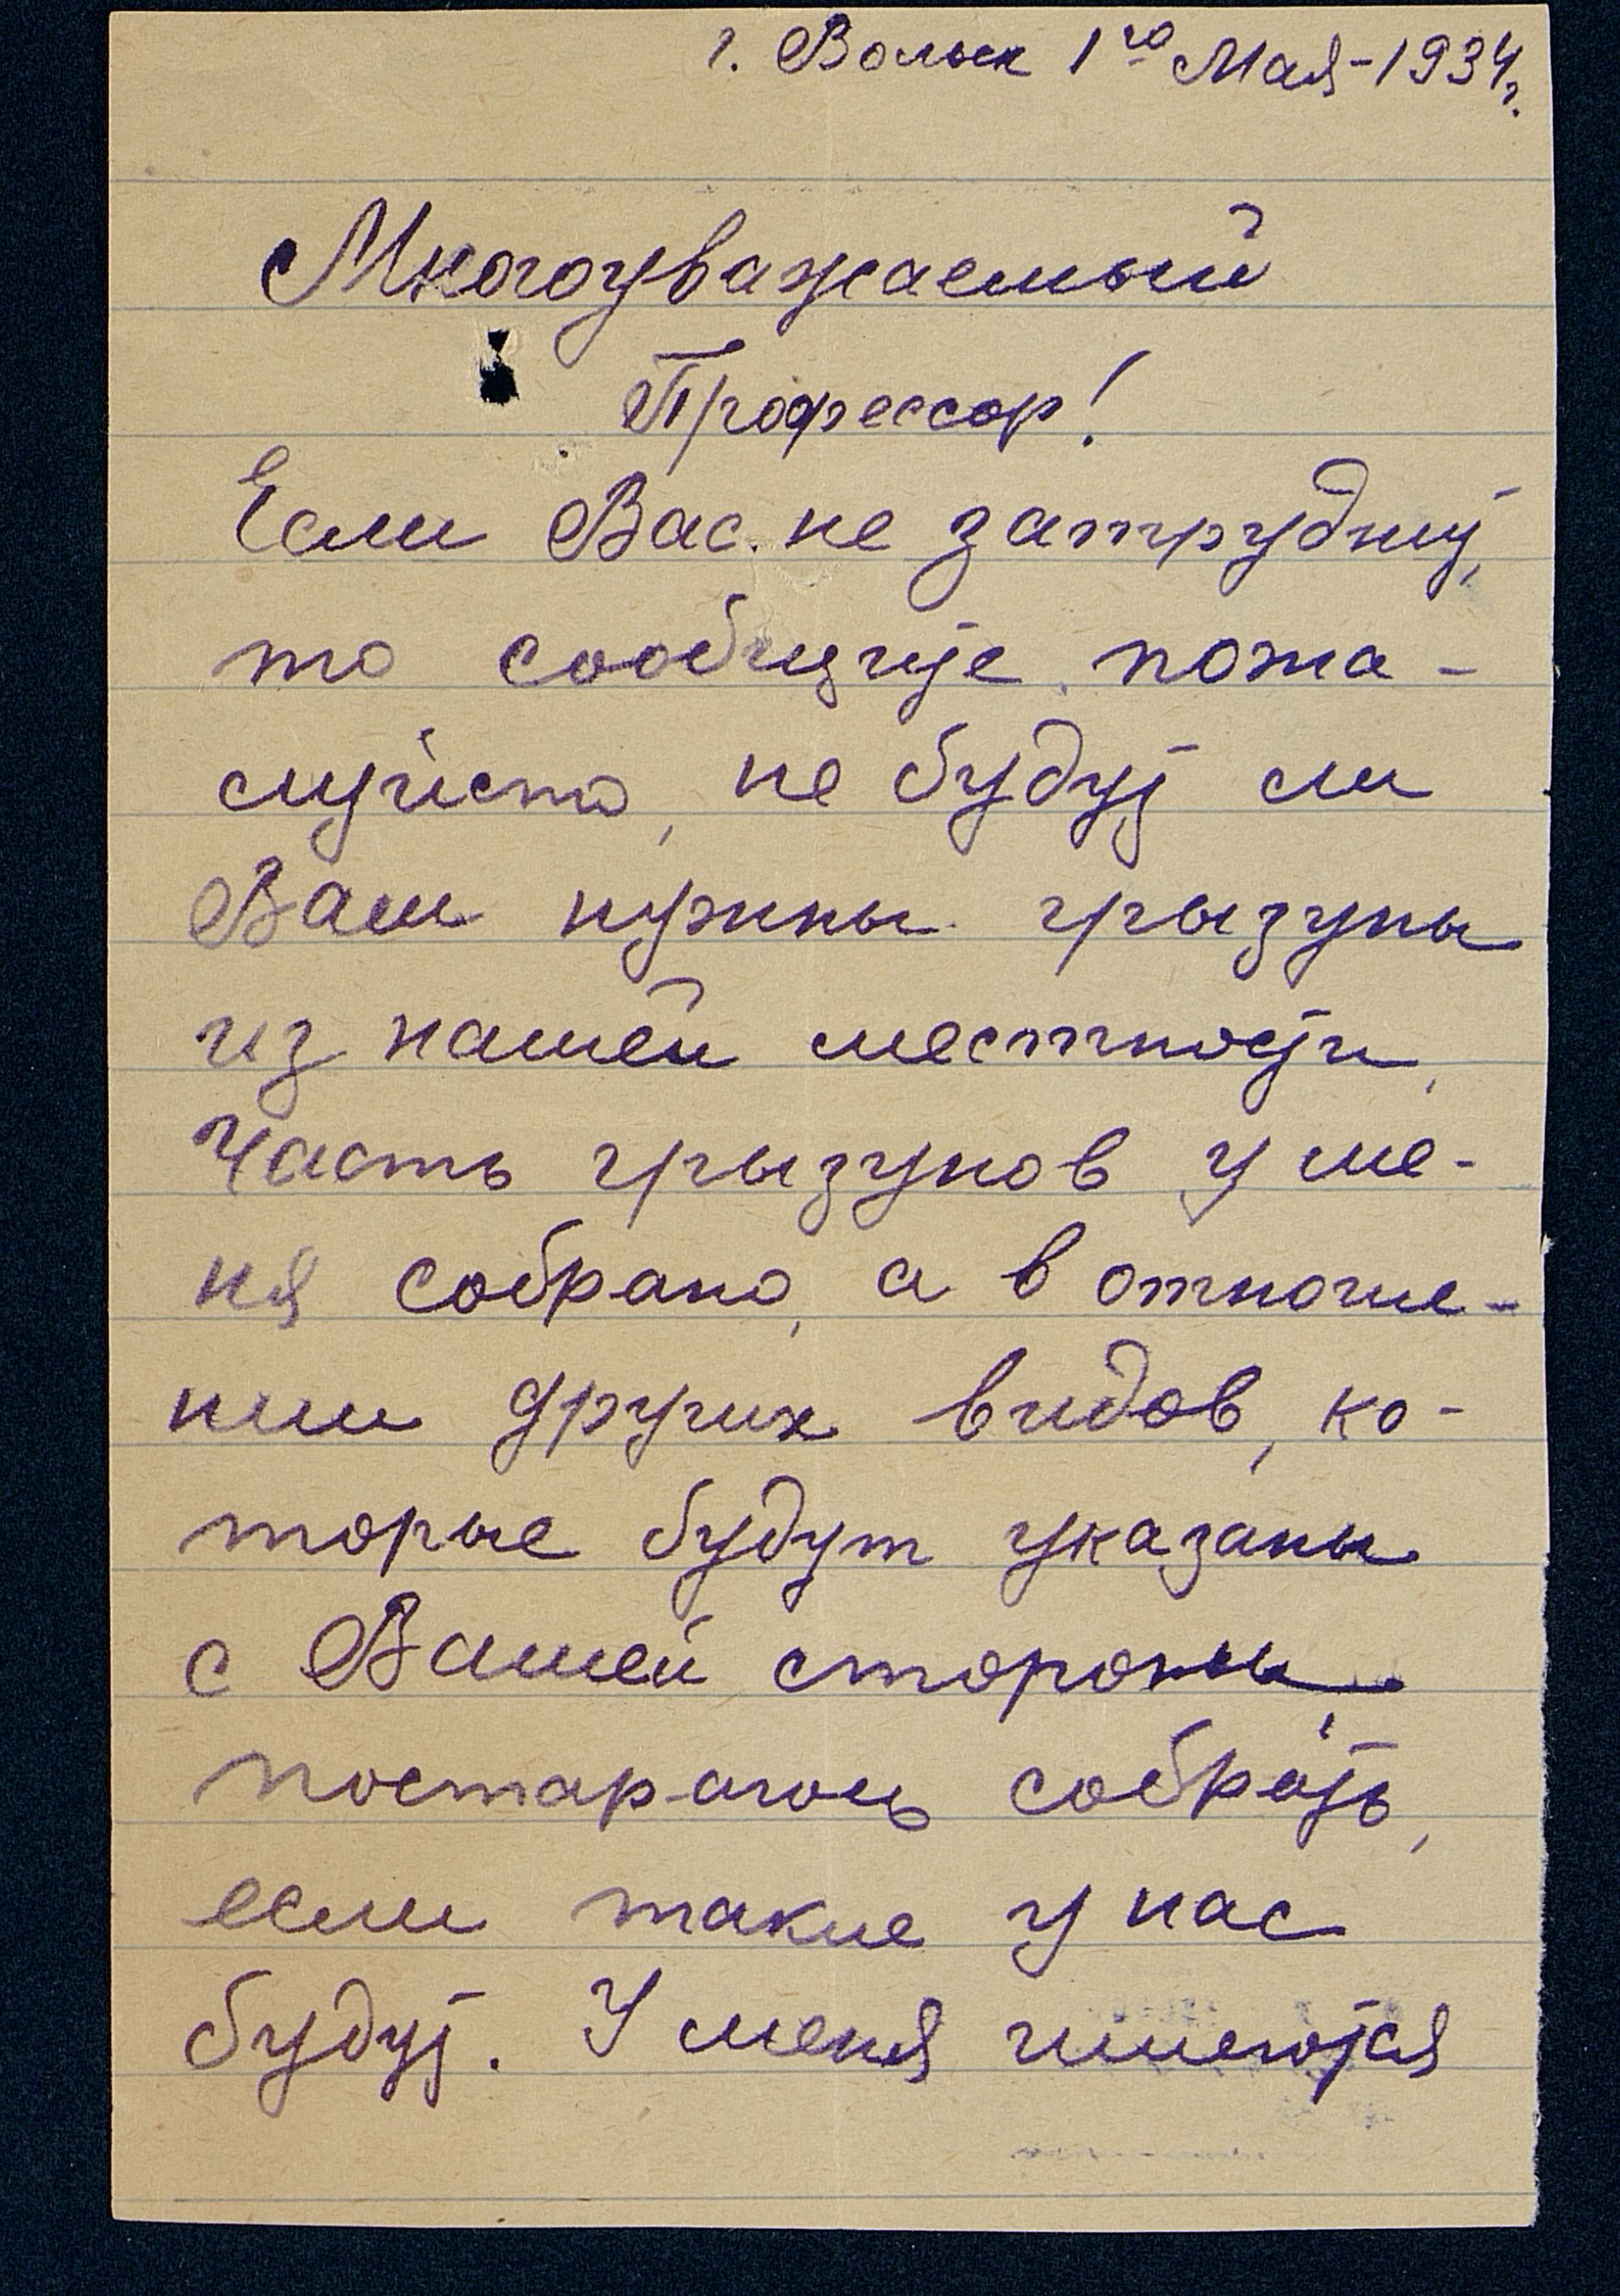 г. Вольск 1го Мая-1934г.
Многоуважаемый
Профессор!
Если Вас не затруднит,
то сообщите, пожа-
луйста, не будут ли
Вам нужны грызуны
из нашей местности,
часть грызунов у ме-
ня собрано, а в отноше-
нии других видов, ко-
торые будут указаны
с Вашей стороны,
постараюсь собрать,
если такие у нас
будут. У меня имеются